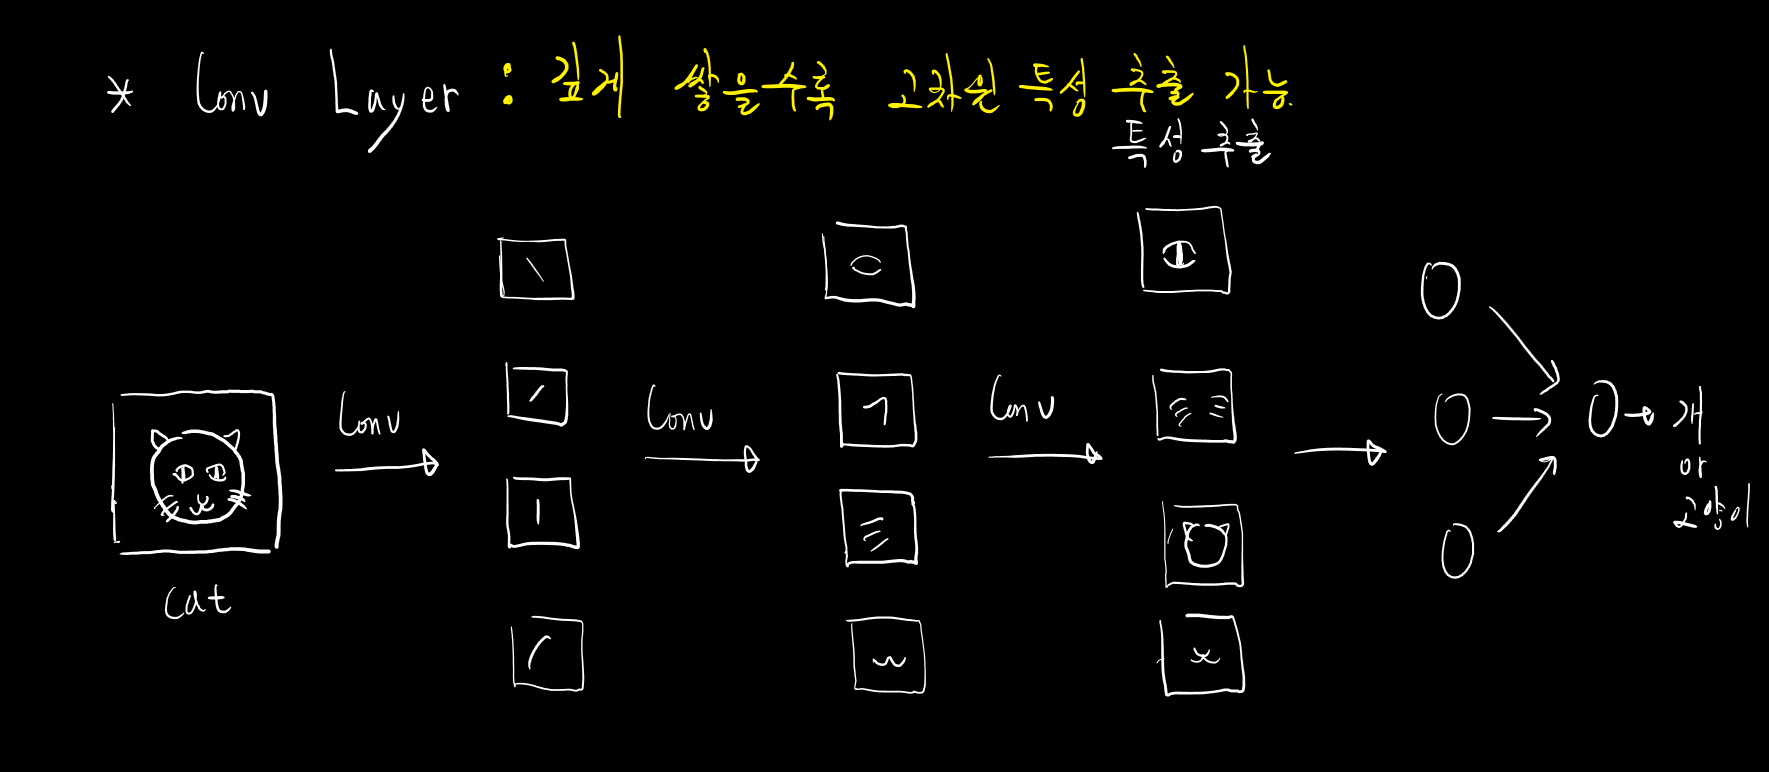 * Conv Layer : 깊게 쌓을수록 고차원 특성 추출 가능.
특성 추출
Conv
Conv
Conv
개
or
고양이
cat